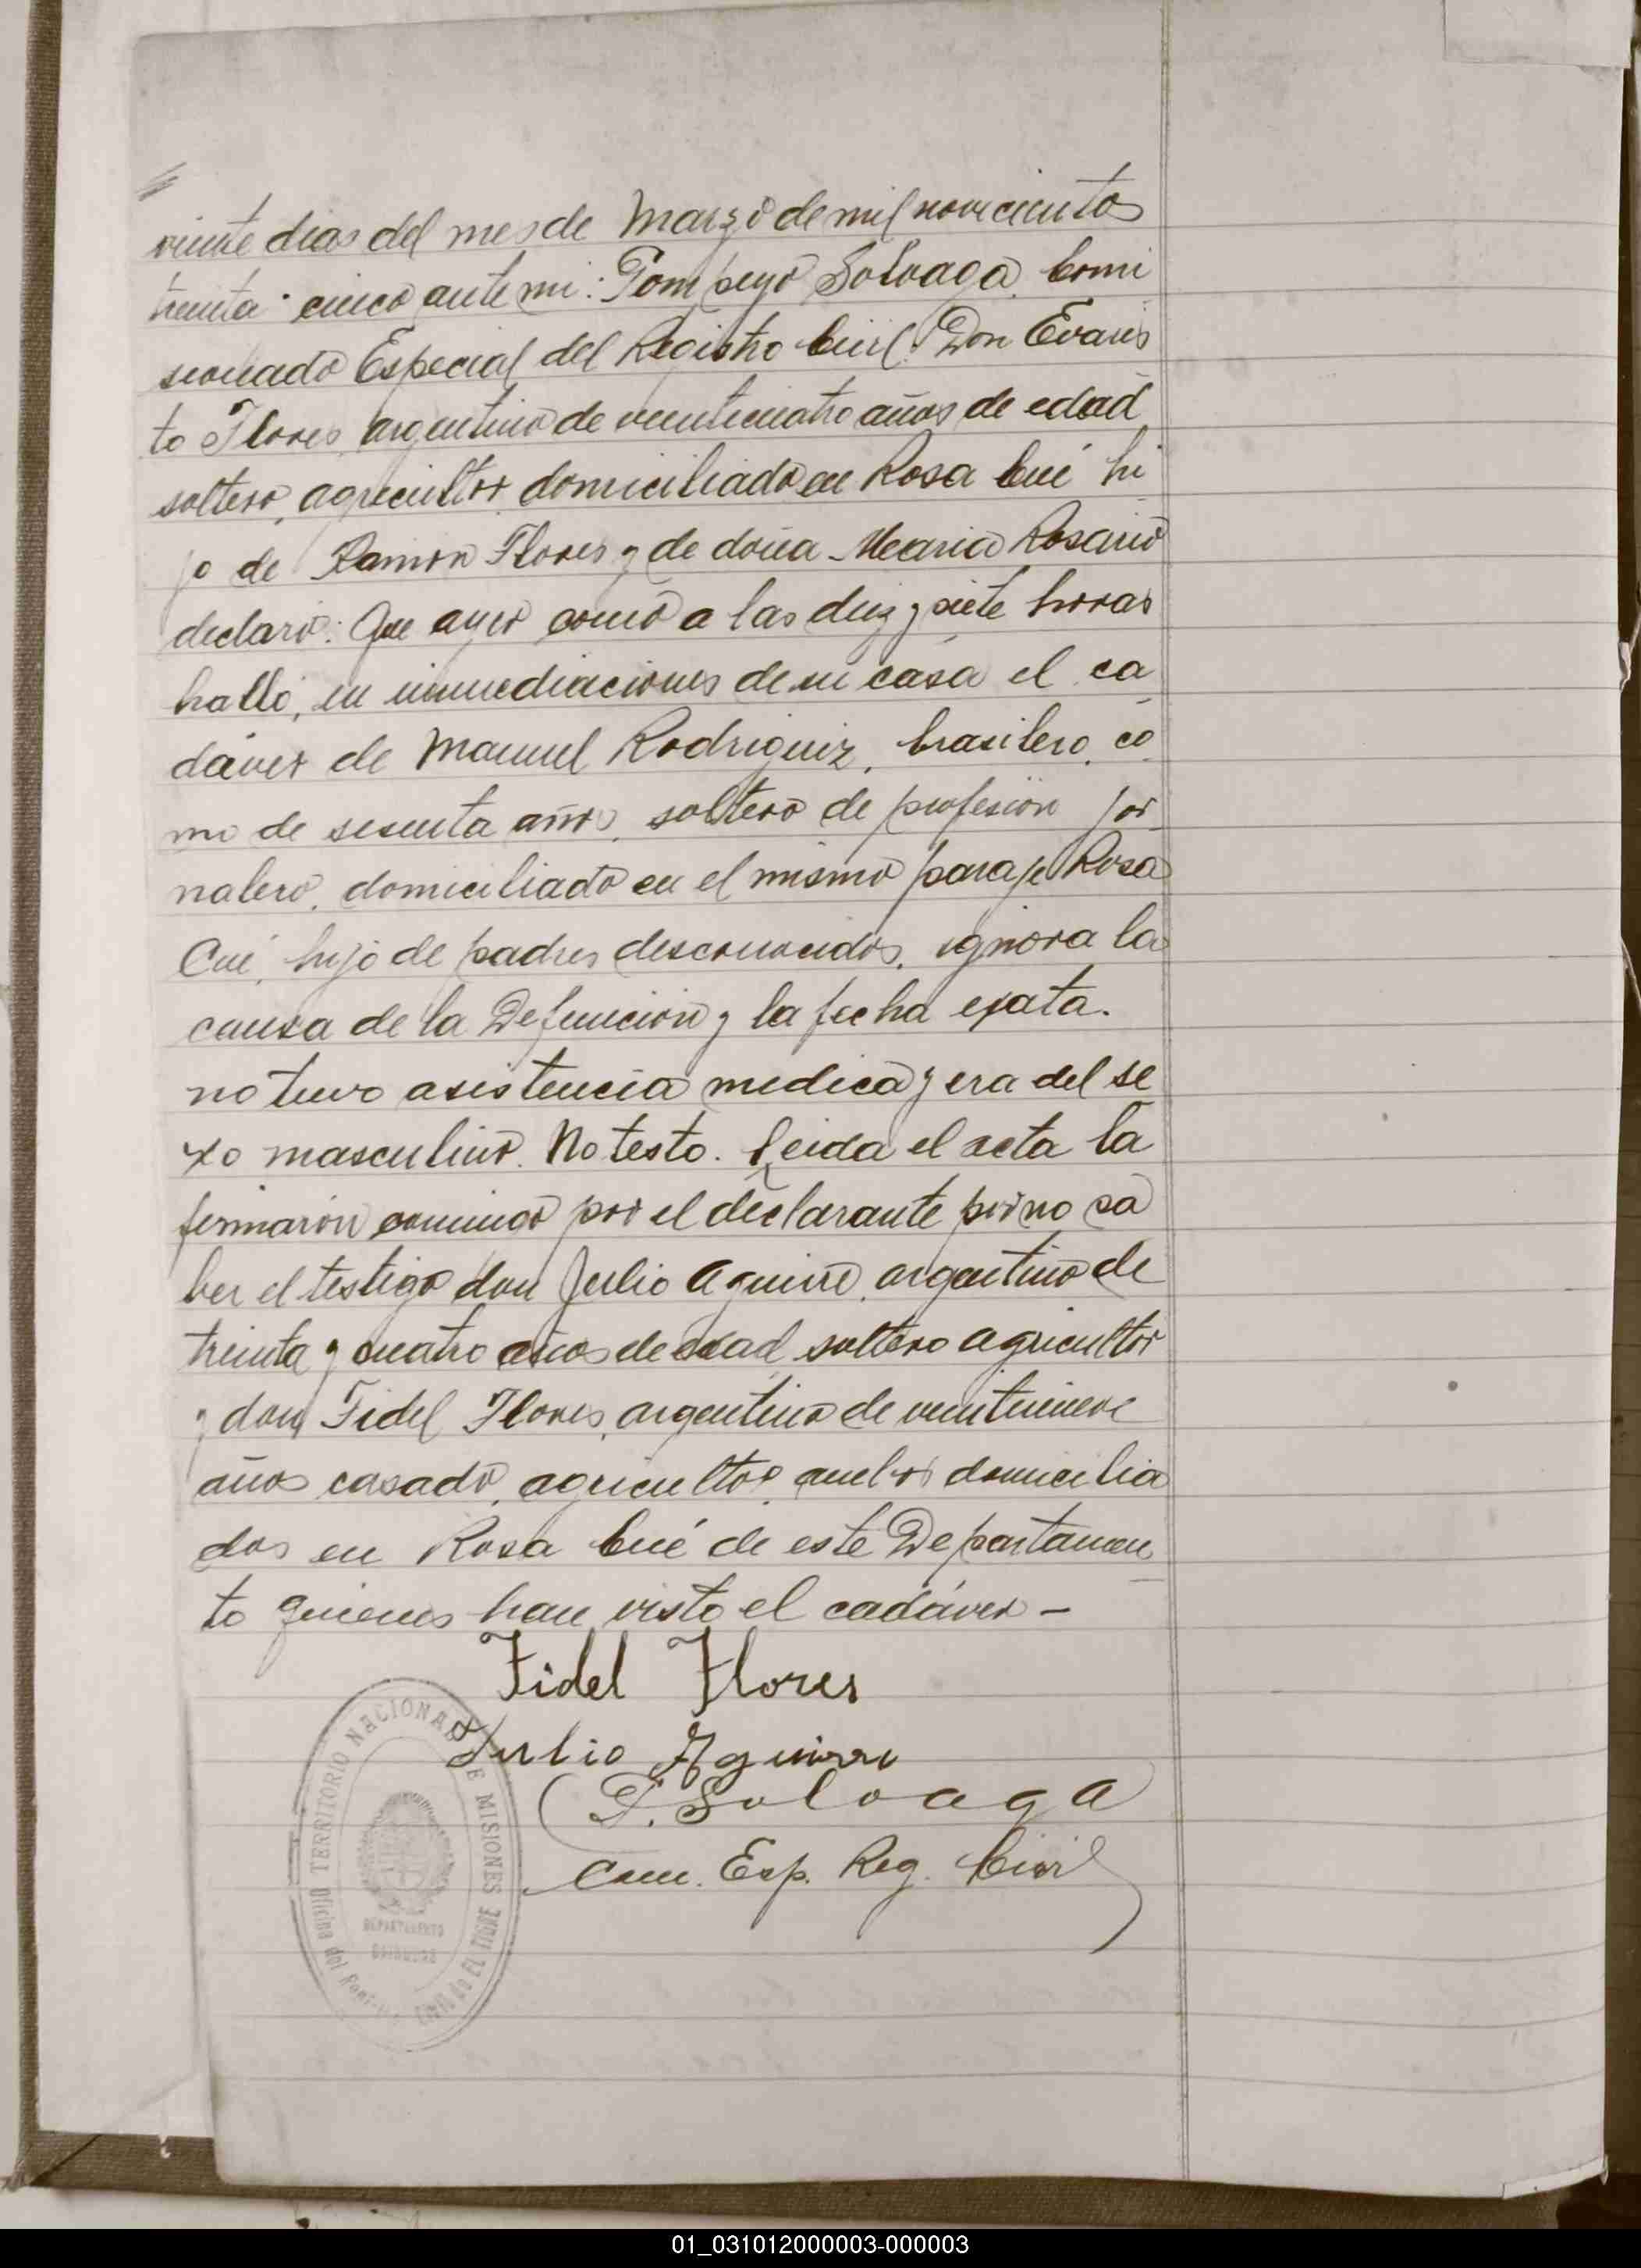 veinte dias del mes de Marzo de mil novecientos
treinta cinco ante mi: Pompeyo Soloaga Comi
sionado Especial del Registro Civil Don Evaris
to Flores, argentino de veinticuatro años de edad
soltero, agricultor domiciliado en Rosa Cué hi
jo de Ramon Flores y de doña Maria Rosario
declaró: Que ayer como a las diez y siete horas
halló, en inmediaciones de su casa el ca
dáver de Manuel Rodriguez, brasilero, co
mo de sesenta años, soltero de profesión jor
nalero, domiciliado en el mismo paraje Rosa
Cué, hijo de padres desconocidos, ignora la
causa de la Defunción y la fecha exata.
no tuvo asistencia medica y era del se
xo masculino. No testo. Leida el acta la
firmaron conmigo por el declarante por no sa
ber el testigo don Julio Aguirre, argentino de
treinta y cuatro años de edad soltero agricultor
y don Fidel Flores, argentino de veintinueve
años casado, agricultor, ambos domicilia
dos en Rosa Cué de este Departamen
to quienes han visto el cadáver -
Fidel Flores
Julio Aguirre
P. Soloaga
Com. Esp. Reg. Civil
TERRITORIO NACIONAL DE MISIONES
Oficina del
EL TIGRE
DEPARTAMENTO
01_031012000003-000003